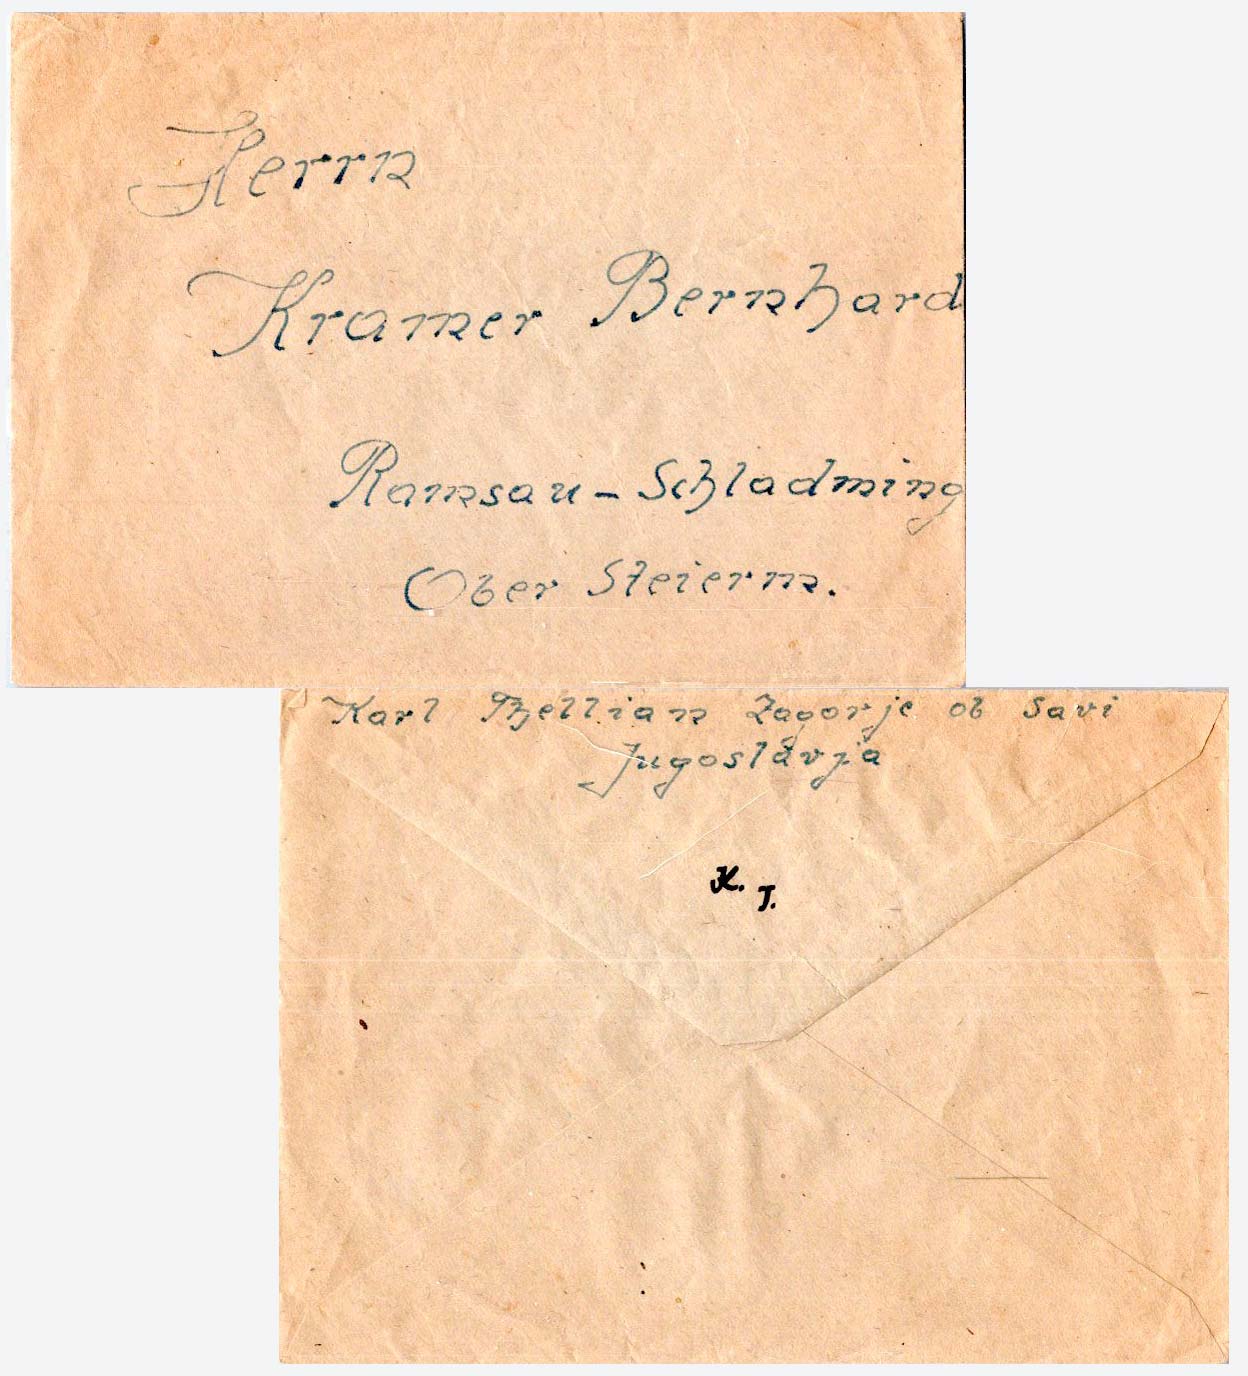 Herrn
Kramer Bernhard
Ramsau - Schladming
Ober Steierm.
Karl Zagorje ob Savi
Jugoslavja
K. T.